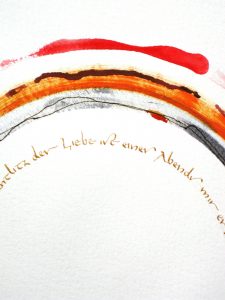 der Liebe ist einer Abends mir